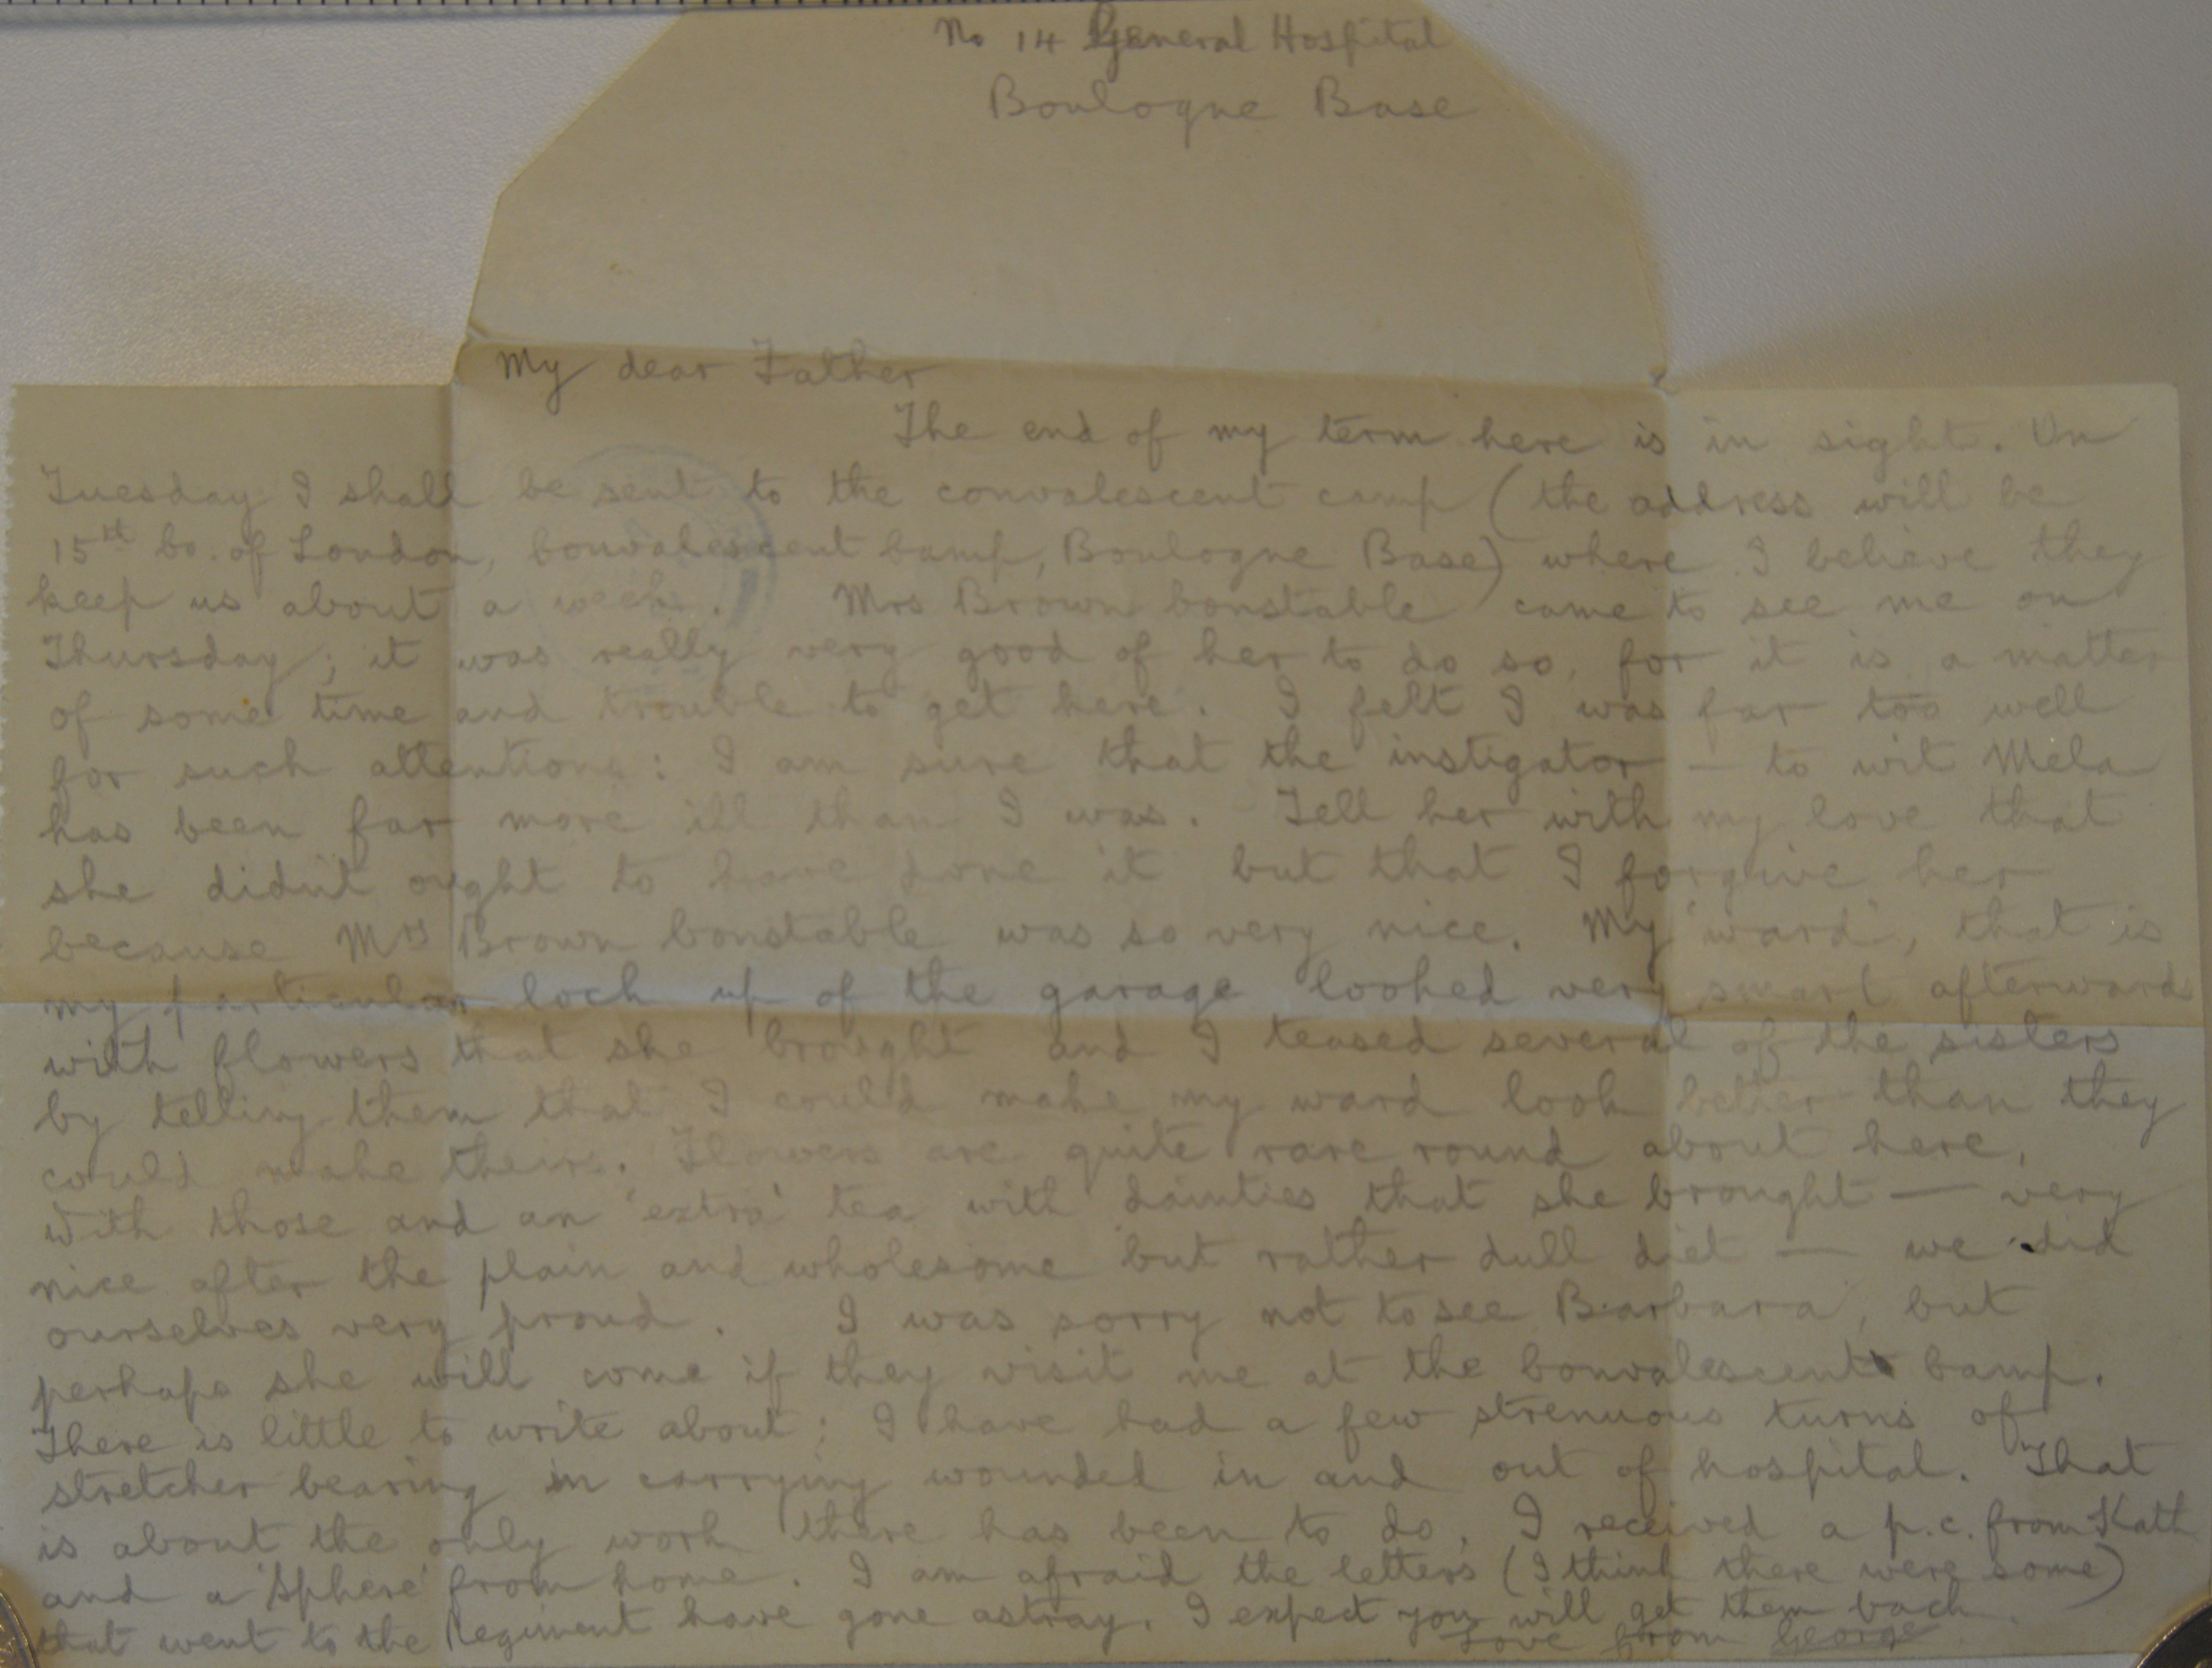 No 14 General Hospital
Boulogne Base
My dear Father
The end of my term here is in sight. On
Tuesday I shall be sent to the convalescent camp (the address will be
15th Co. of London, Convalescent Camp, Boulogne Base) where I believe they
keep us about a week. Mrs Brown Constable came to see me on
Thursday; it was really very good of her to do so, for it is a matter
of some time and trouble to get here. I felt I was far too well
for such attentions: I am sure that the instigator — to wit Mela
has been far more ill than I was. Tell her with my love that
she didn't ought to have done it but that I forgive her
because Mrs Brown Constable was so very nice. My 'ward', that is
my particular lock up of the garage looked very smart afterwards
with flowers that she brought and I teased several of the sisters
by telling them that I could make my ward look better than they
could make theirs. Flowers are quite rare round about here.
With those and an 'extra' tea with dainties that she brought — very
nice after the plain and wholesome but rather dull diet — we did
ourselves very proud. I was sorry not to see Barbara, but
perhaps she will come if they visit me at the Convalescent Camp.
There is little to write about; I have had a few strenuous turns of
stretcher bearing in carrying wounded in and out of hospital. That
is about the only work there has been to do. I received a p.c. from Kath
and a 'Sphere' from home. I am afraid the letters (I think there were some)
that went to the Regiment have gone astray. I expect you will get them back.
Love from George